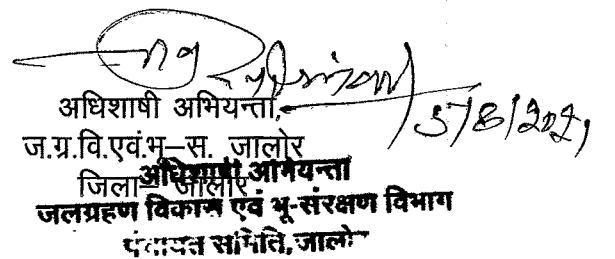 5/8/2021
अधिशाषी अभियन्ता,
ज.ग्र.वि.एवं.भू–स. जालोर
जिला– जालोर
अधिशाषी अभियन्ता
जलग्रहण विकास एवं भू-संरक्षण विभाग
पंचायत समिति, जालोर